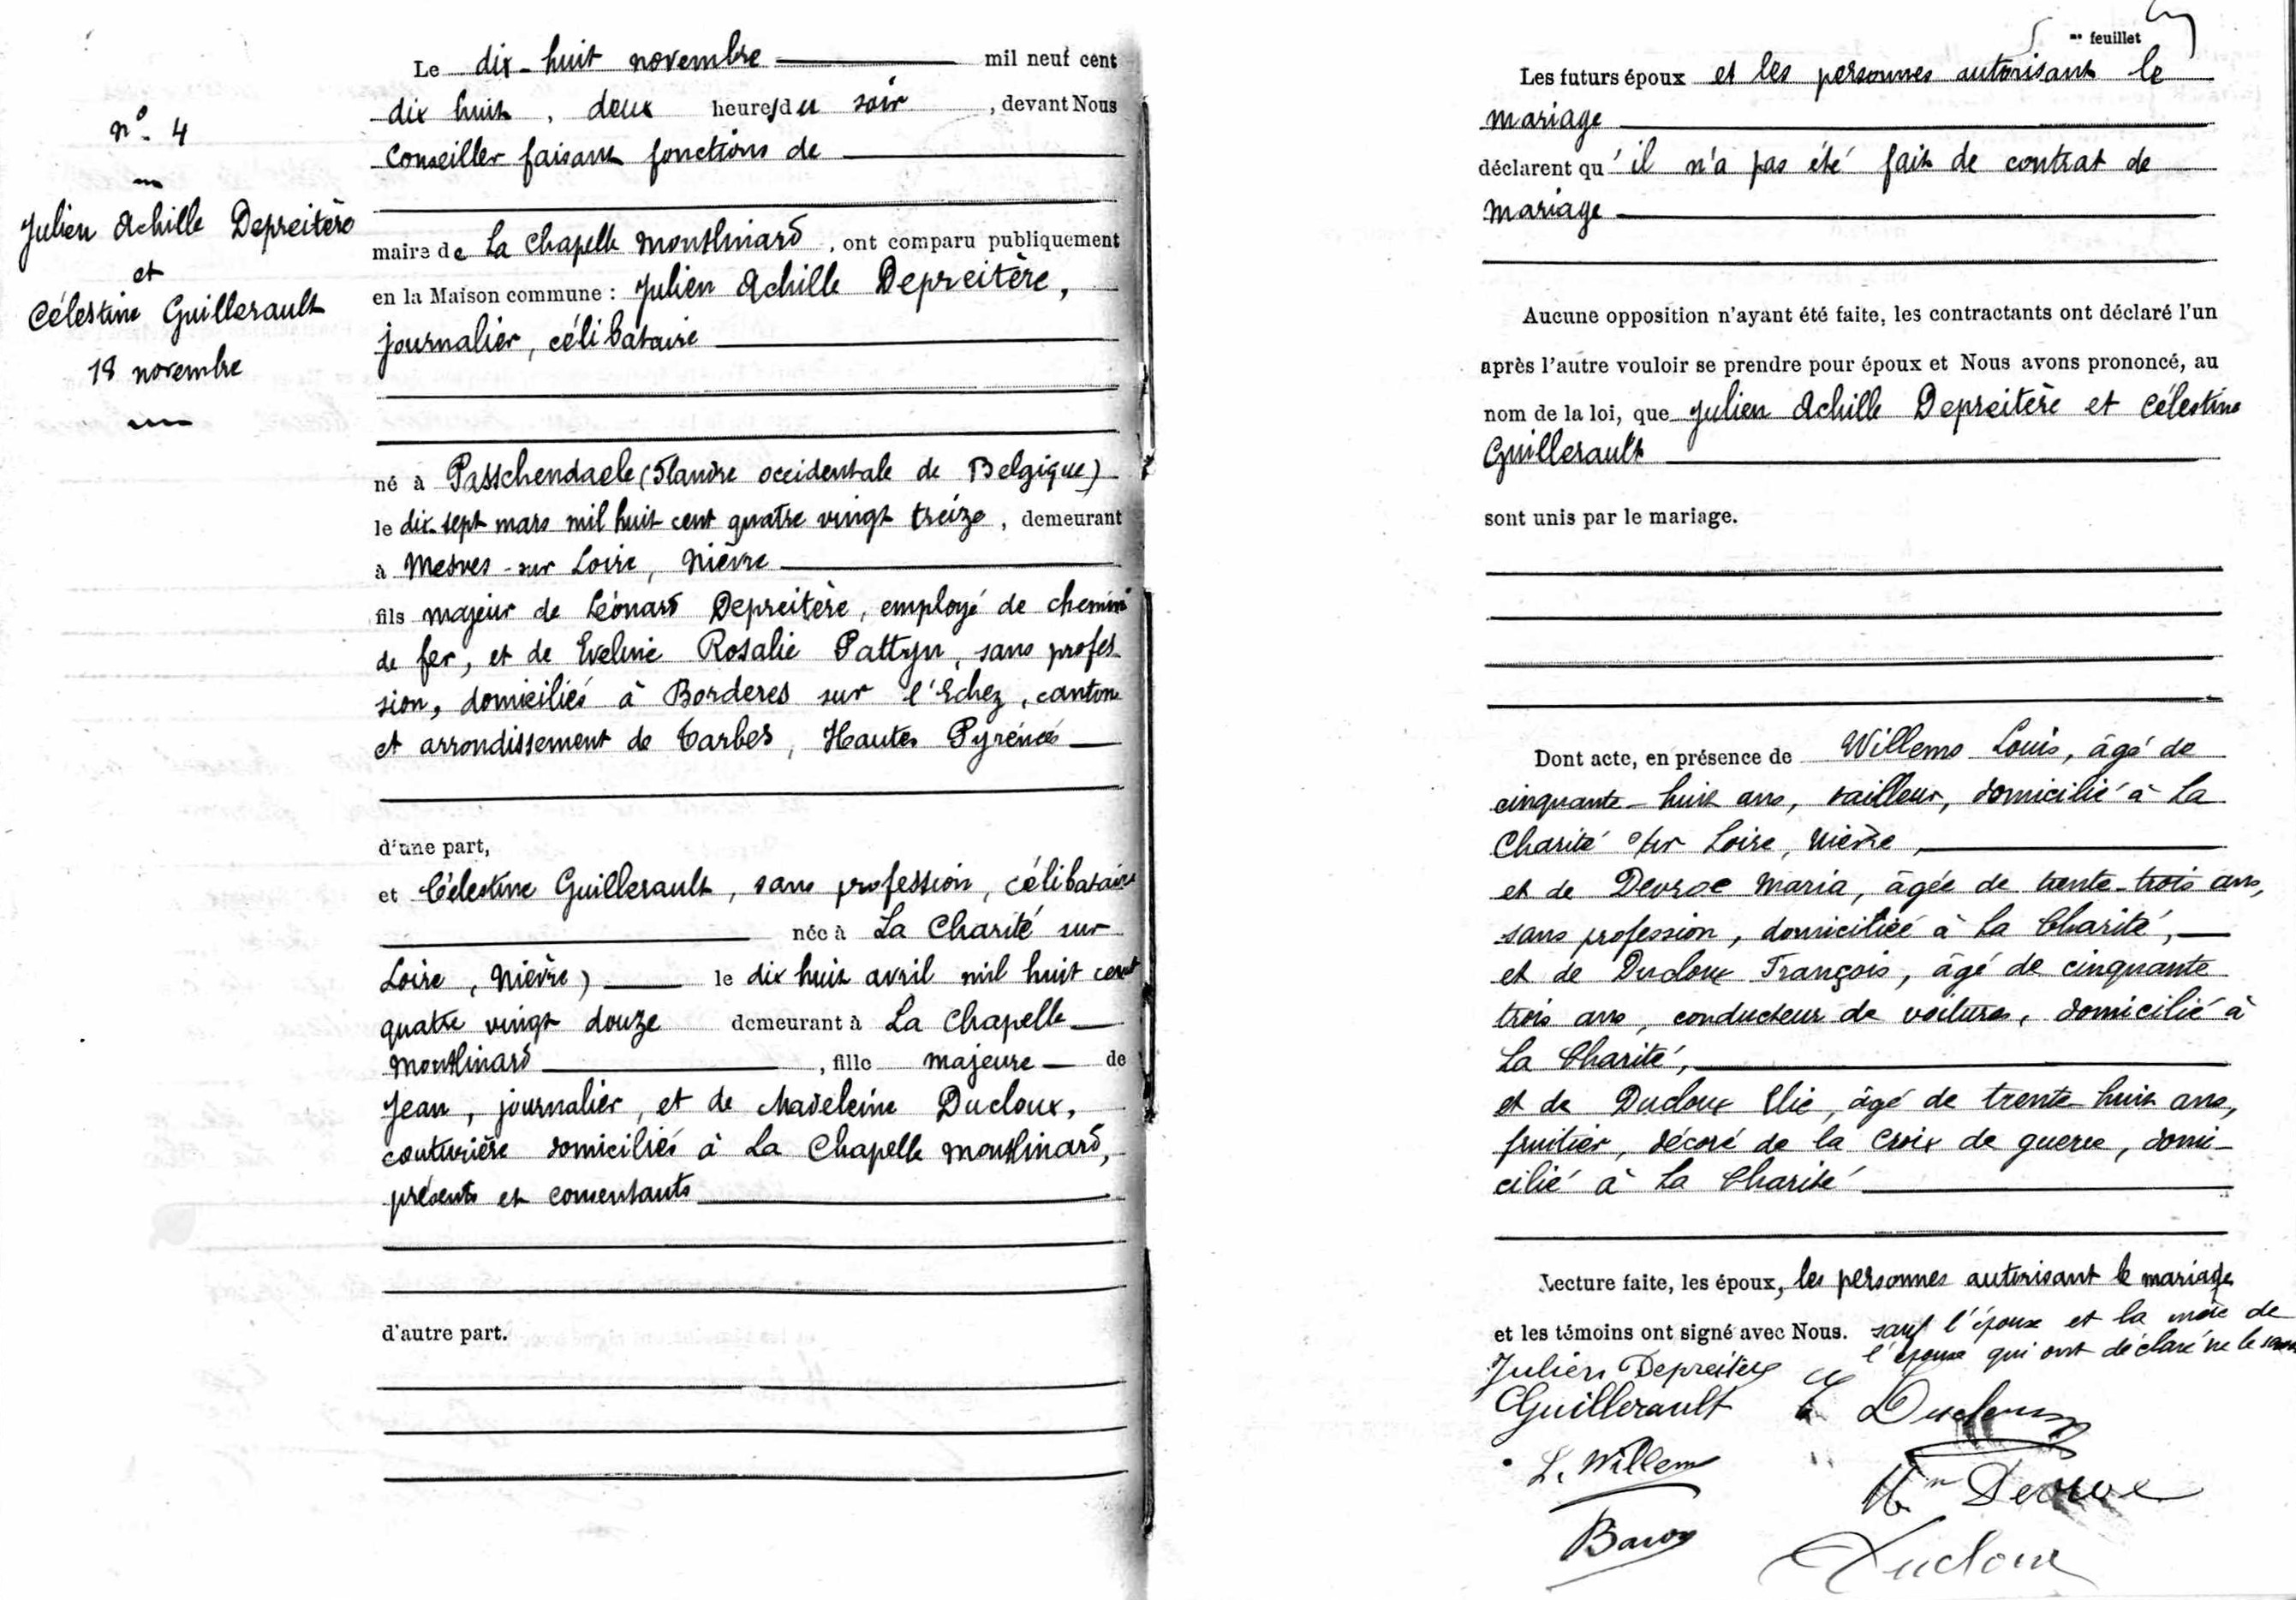 n° 4
Julien Achille Depreitère
et
Célestine Guillerault
18 novembre
Le dix-huit novembre mil neuf cent
dix huit, deux heures du soir, devant Nous
Conseiller faisant fonctions de
maire de La Chapelle Montlinard, ont comparu publiquement
en la Maison commune : Julien Achille Depreitère,
journalier, célibataire
né à Passchendaele (Flandre occidentale de Belgique)
le dix-sept mars mil huit cent quatre vingt treize, demeurant
à Mesves-sur Loire, Nièvre
fils majeur de Léonard Depreitère, employé de chemin
de fer, et de Eveline Rosalie Pattyn, sans profes-
sion, domiciliés à Borderes sur l'Echez, canton
et arrondissement de Tarbes, Hautes Pyrénées
d'une part,
et Célestine Guillerault, sans profession, célibataire
née à La Charité sur
Loire, Nièvre) le dix huit avril mil huit cent
quatre vingt douze demeurant à La Chapelle
Montlinard, fille majeure de
Jean, journalier, et de Madeleine Ducloux,
couturière domiciliés à La Chapelle Montlinard,
présents et consentants
d'autre part.
5 me feuillet
Les futurs époux et les personnes autorisant le
mariage
déclarent qu'il n'a pas été fait de contrat de
mariage
Aucune opposition n'ayant été faite, les contractants ont déclaré l'un
après l'autre vouloir se prendre pour époux et Nous avons prononcé, au
nom de la loi, que Julien Achille Depreitère et Célestine
Guillerault
sont unis par le mariage.
Dont acte, en présence de Willems Louis, âgé de
cinquante-huit ans, tailleur, domicilié à La
Charité sur Loire, Nièvre,
et de Devroe Maria, âgée de trente-trois ans,
sans profession, domiciliée à La Charité,
et de Ducloux François, âgé de cinquante
trois ans, conducteur de voitures, domicilié à
La Charité,
et de Ducloux Elie, âgé de trente huit ans,
fruitier, décoré de la Croix de guerre, domi-
cilié à La Charité
Lecture faite, les époux, les personnes autorisant le mariage
et les témoins ont signé avec Nous. sauf l'épouse et la mère de
l'épouse qui ont déclaré ne le savoir
Julien Depreitère
Guillerault E Ducloux
L. Willems
Devroe
Baron
Ducloux